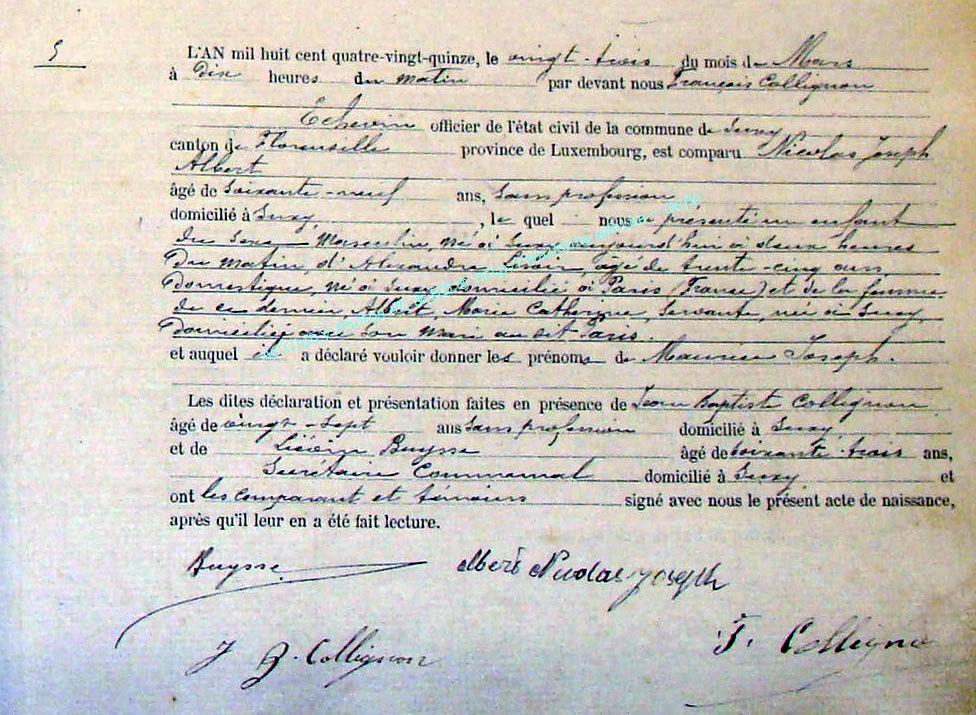 5
L'AN mil huit cent quatre-vingt-quinze, le vingt-trois du mois de Mars
à Dix heures du matin par devant nous François Collignon
Echevin officier de l'état civil de la commune de Suxy
canton de Florenville province de Luxembourg, est comparu Nicolas Joseph
Albert
âgé de soixante-neuf ans, sans profession
domicilié à Suxy, le quel nous a présenté un enfant
du sexe Masculin, né à Suxy aujourd'hui à deux heures
du matin, d'Alexandre âgé de trente-cinq ans,
domestique, né à Suxy domicilié à Paris (France) et de la femme
de ce dernier, Albert, Marie Catherine, servante, née à Suxy,
domiciliée avec son mari au dit Paris.
et auquel il a déclaré vouloir donner les prénoms de Maurice Joseph.
Les dites déclaration et présentation faites en présence de Jean Baptiste Collignon
âgé de vingt-sept ans sans profession domicilié à Suxy
et de Buysse âgé de soixante-trois ans,
Secrétaire Communal domicilié à Suxy et
ont les comparant et témoins signé avec nous le présent acte de naissance,
après qu'il leur en a été fait lecture.
Buysse Albert Nicolas Joseph
J B. Collignon F. Collignon